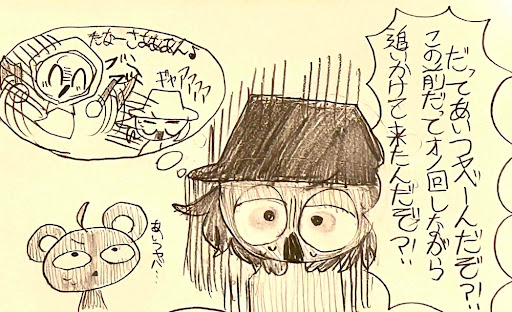 だってあいつヤベーんだぞ?!
この前だってオノ回しながら
追いかけて来たんだぞ?!
たなーさぁぁぁん♪
ブン
ブン
ギャアアアア
あいつヤベ…